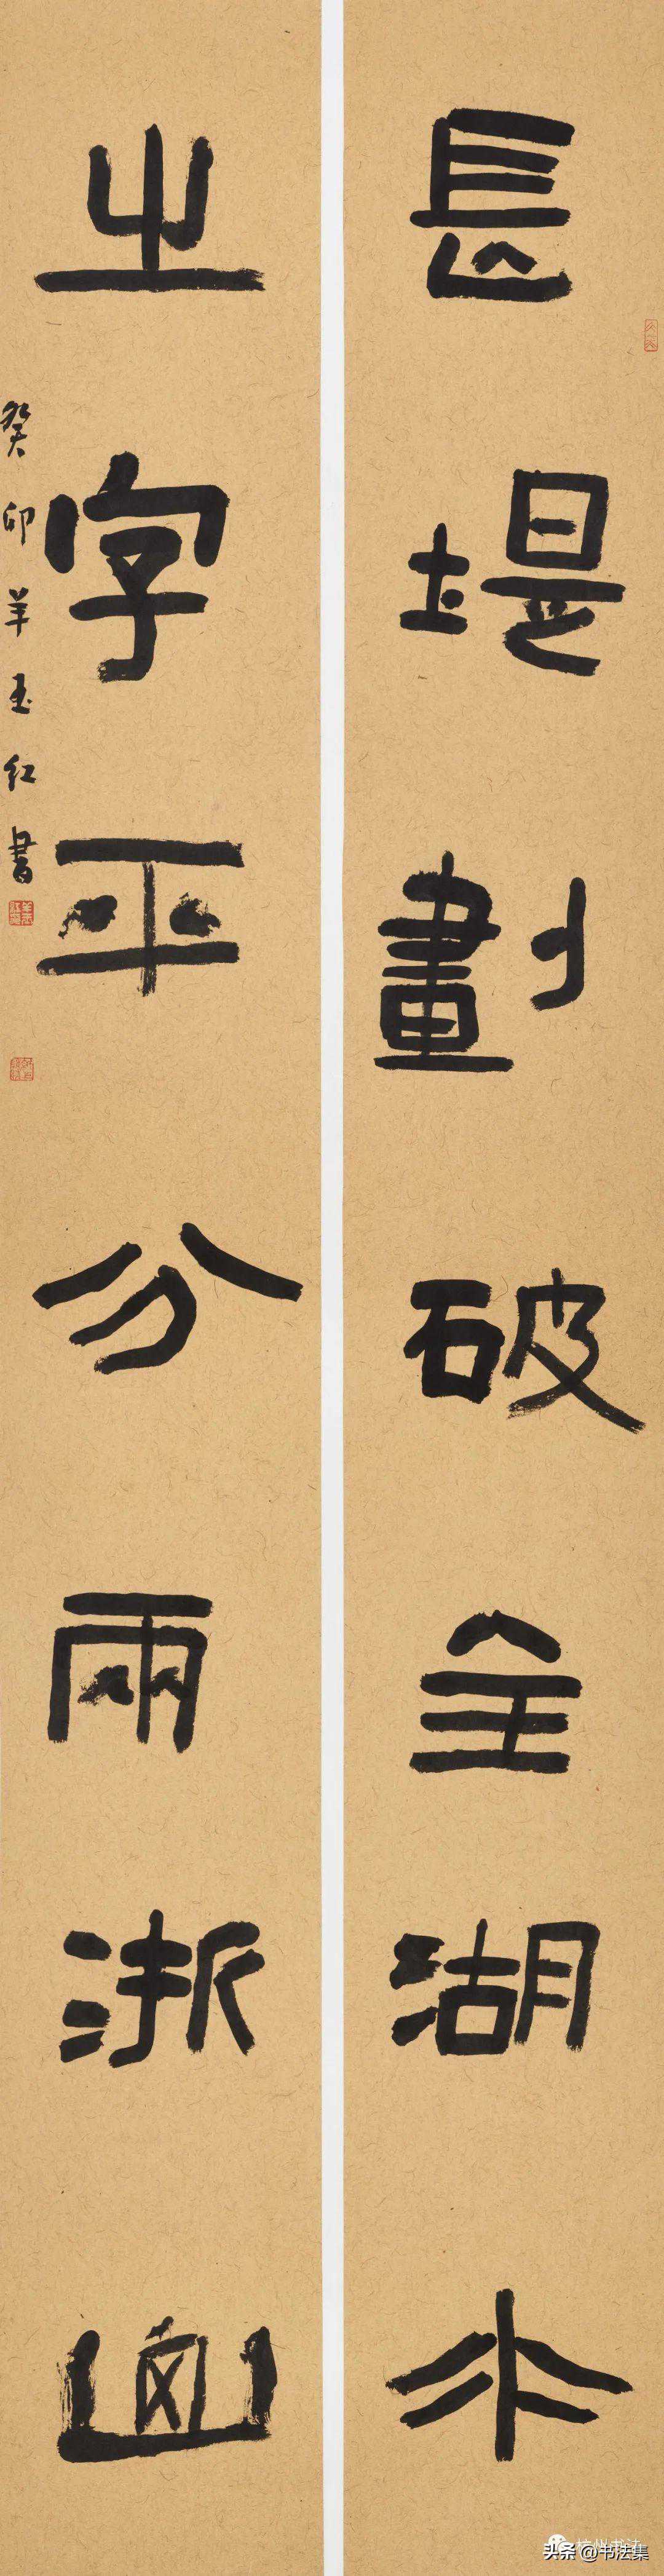 長堤劃破全湖水
之字平分兩浙山
癸卯羊玉红書
杭州书法
头条 @书法集